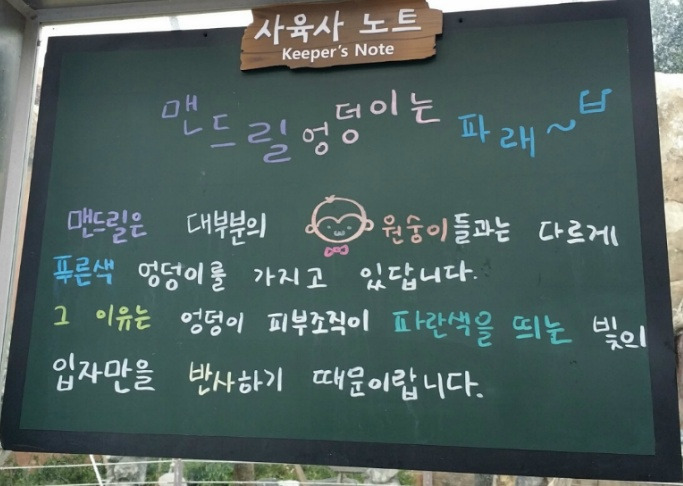 사육사 노트
Keeper's Note
맨드릴 엉덩이는 파래~
맨드릴은 대부분의 원숭이들과는 다르게
푸른색 엉덩이를 가지고 있답니다.
그 이유는 엉덩이 피부조직이 파란색을 띄는 빛의
입자만을 반사하기 때문이랍니다.